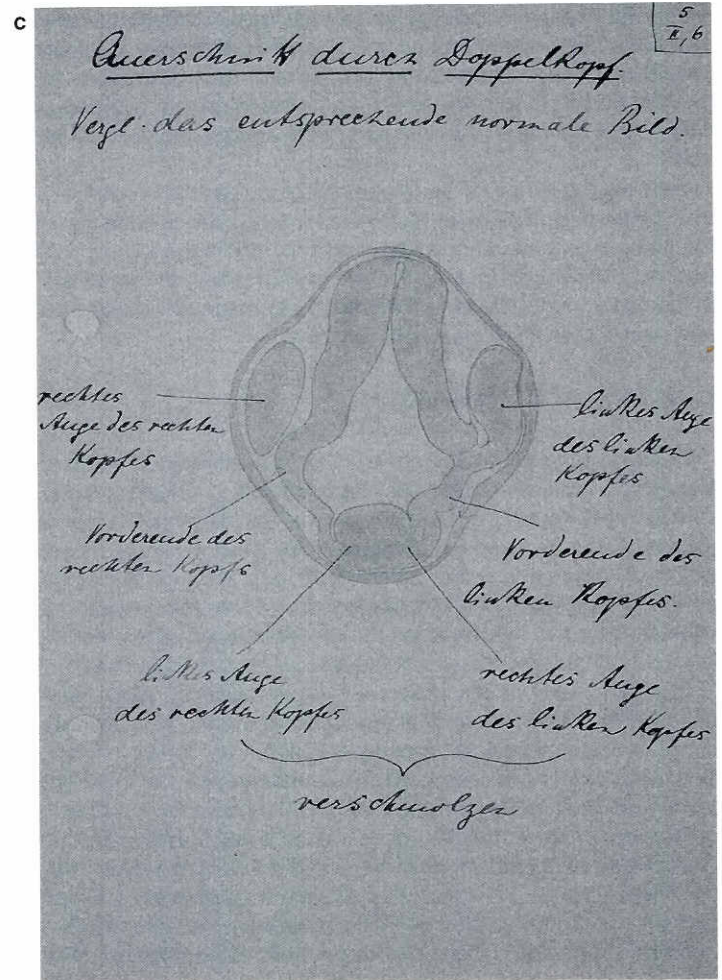 c
5
II, 6
Querschnitt durch Doppelkopf.
Vergl. das entsprechende normale Bild.
rechtes
Auge des rechten
Kopfes
linkes Auge
des linken
Kopfes
Vorderende des
rechten Kopfs
Vorderende des
linken Kopfes.
linkes Auge
des rechten Kopfes
rechtes Auge
des linken Kopfes
verschmolzen